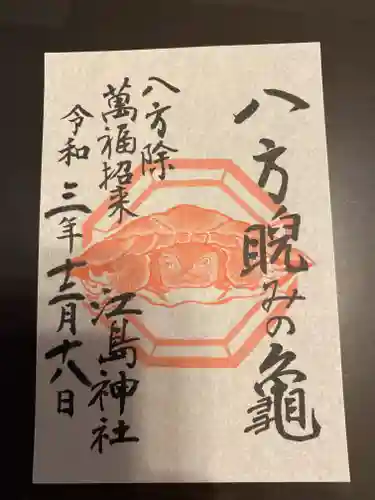 八方睨みの亀
八方除
萬福招来
江島神社
令和三年十二月十八日